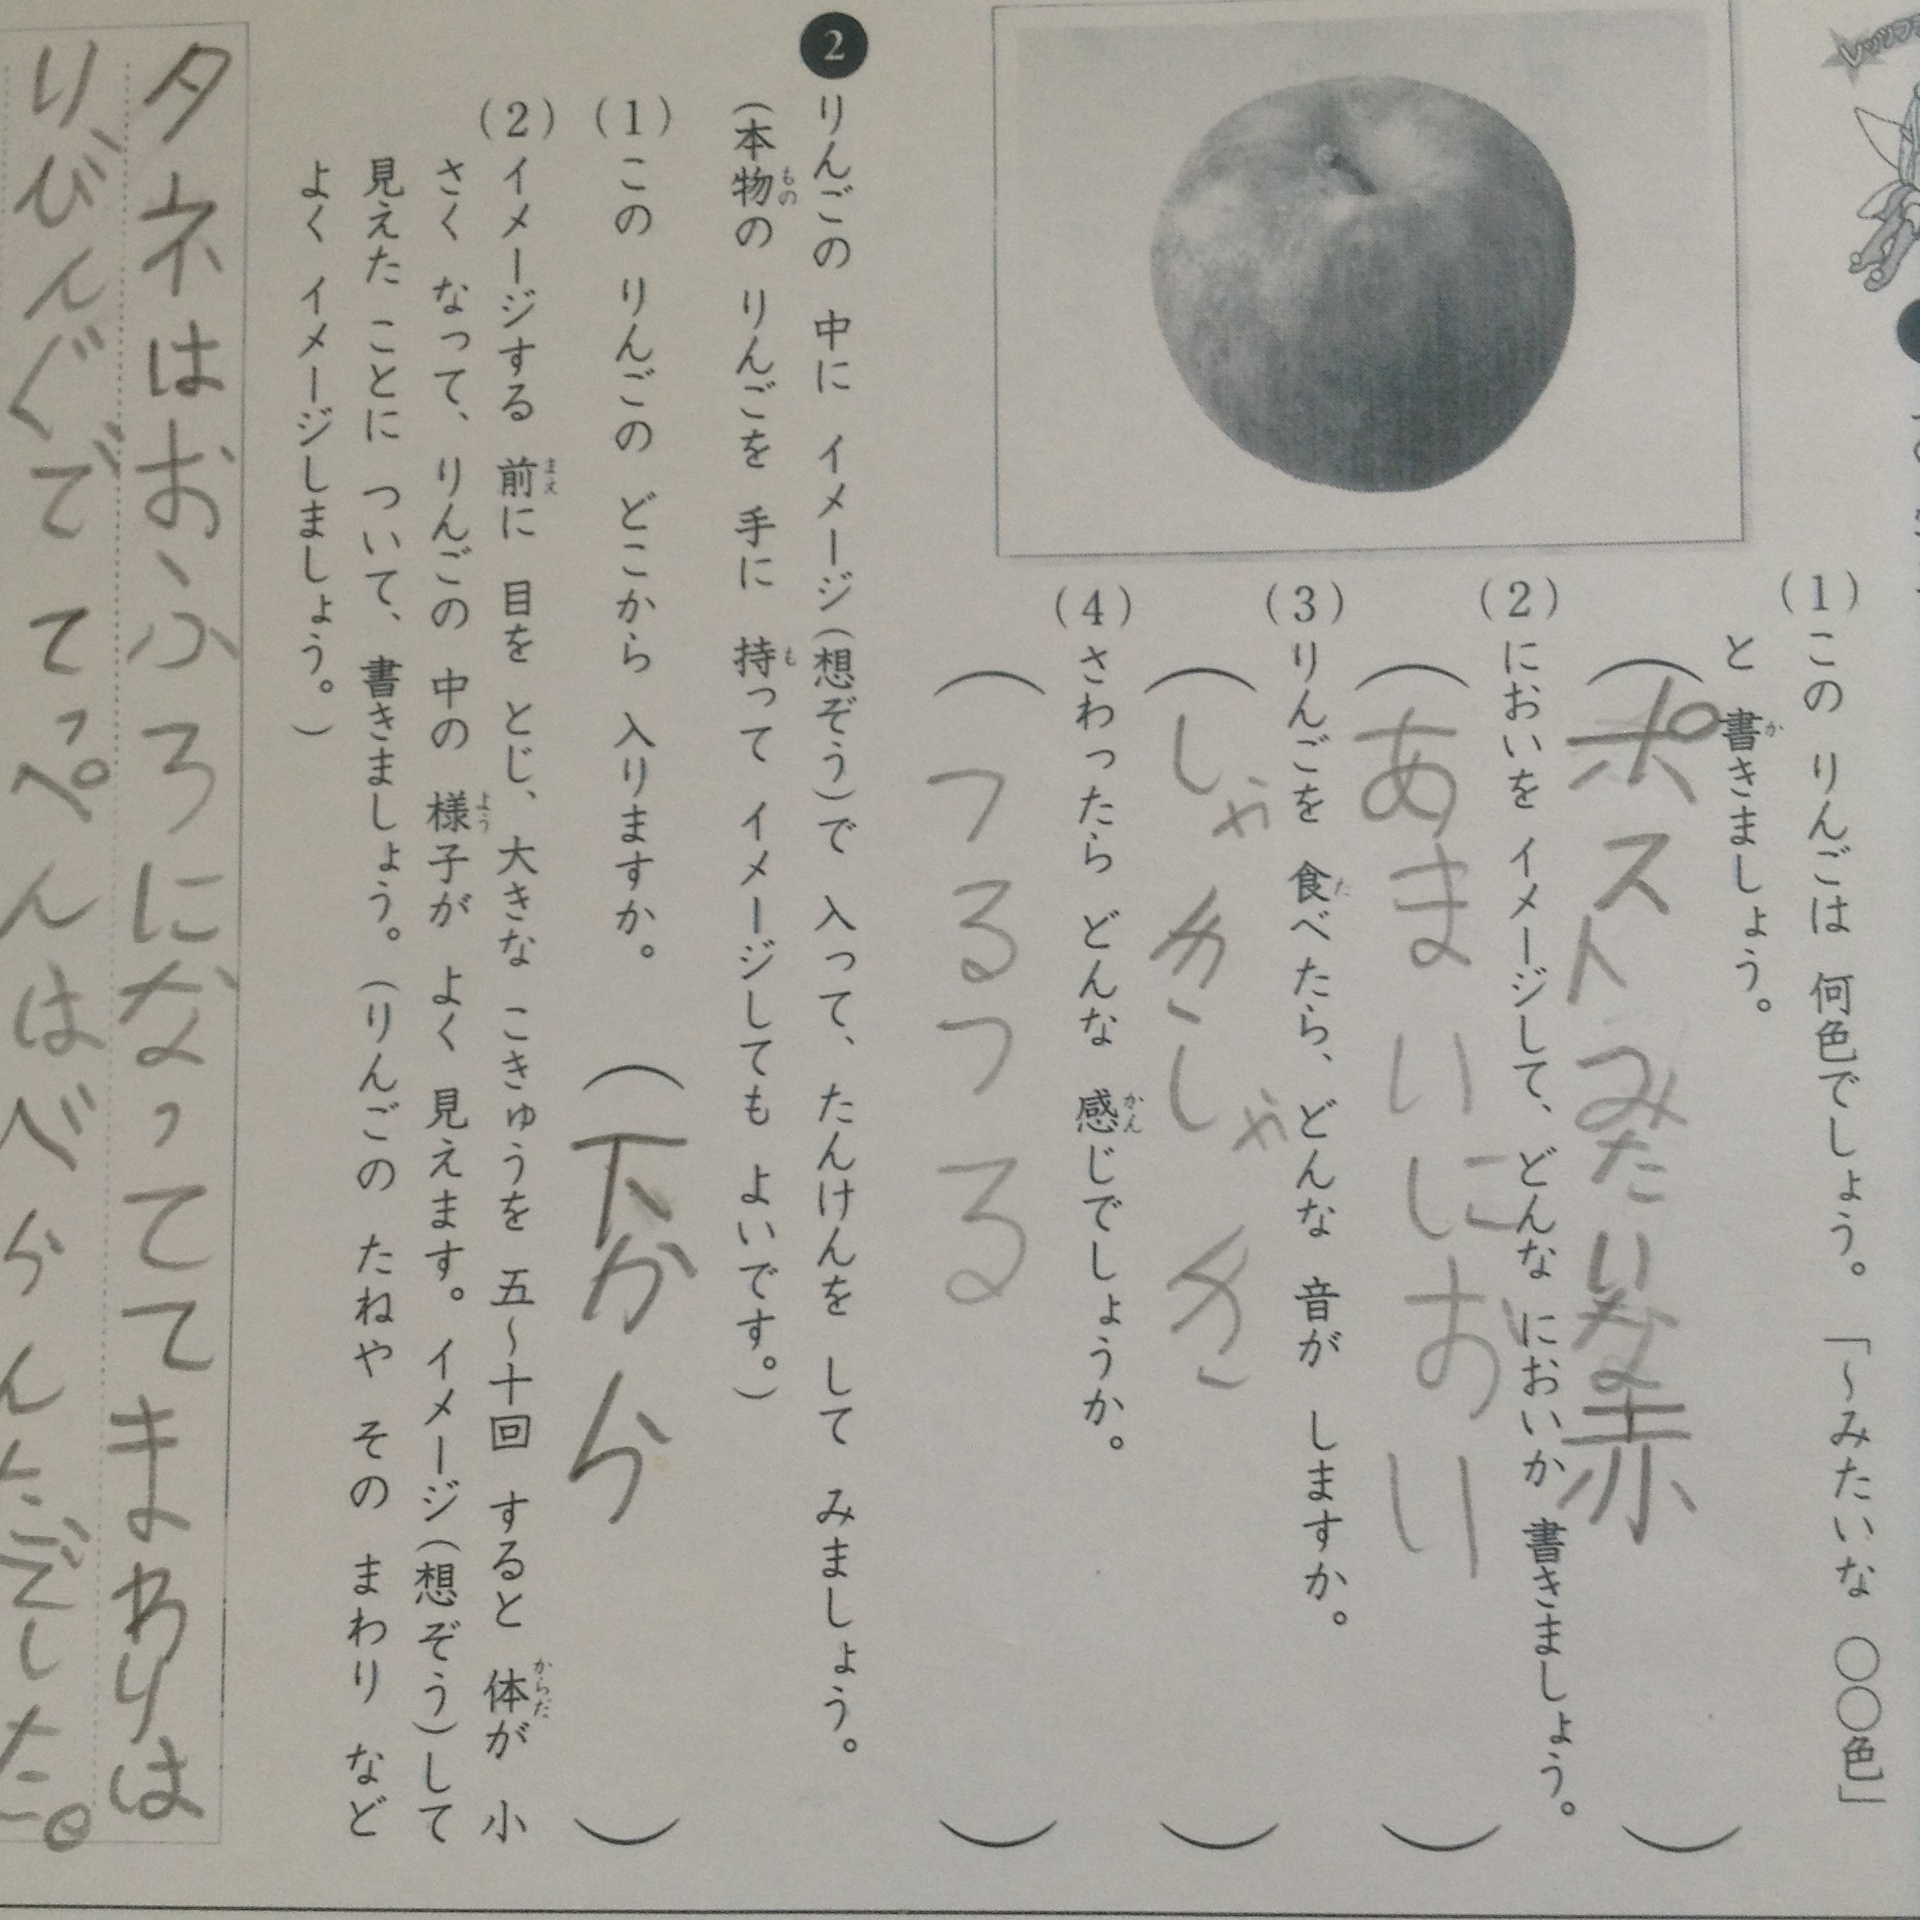 (1) この りんごは 何色でしょう。 「〜みたいな ○○色」
と 書きましょう。
(ポストみたいな赤)
(2) においを イメージして、どんな においか 書きましょう。
(あまいにおい)
(3) りんごを 食べたら、どんな 音が しますか。
(しゃきしゃき)
(4) さわったら どんな 感じでしょうか。
(つるつる)
2 りんごの 中に イメージ(想ぞう)で 入って、たんけんを して みましょう。
(本物の りんごを 手に 持って イメージしても よいです。)
(1) この りんごの どこから 入りますか。
(下から)
(2) イメージする 前に 目を とじ、大きな こきゅうを 五〜十回 すると 体が 小
さく なって、りんごの 中の 様子が よく 見えます。イメージ(想ぞう)して
見えた ことに ついて、書きましょう。(りんごの たねや その まわり など
よく イメージしましょう。)
タネはおふろになっててまわりは
りびんぐでてっぺんはべらんだでした。